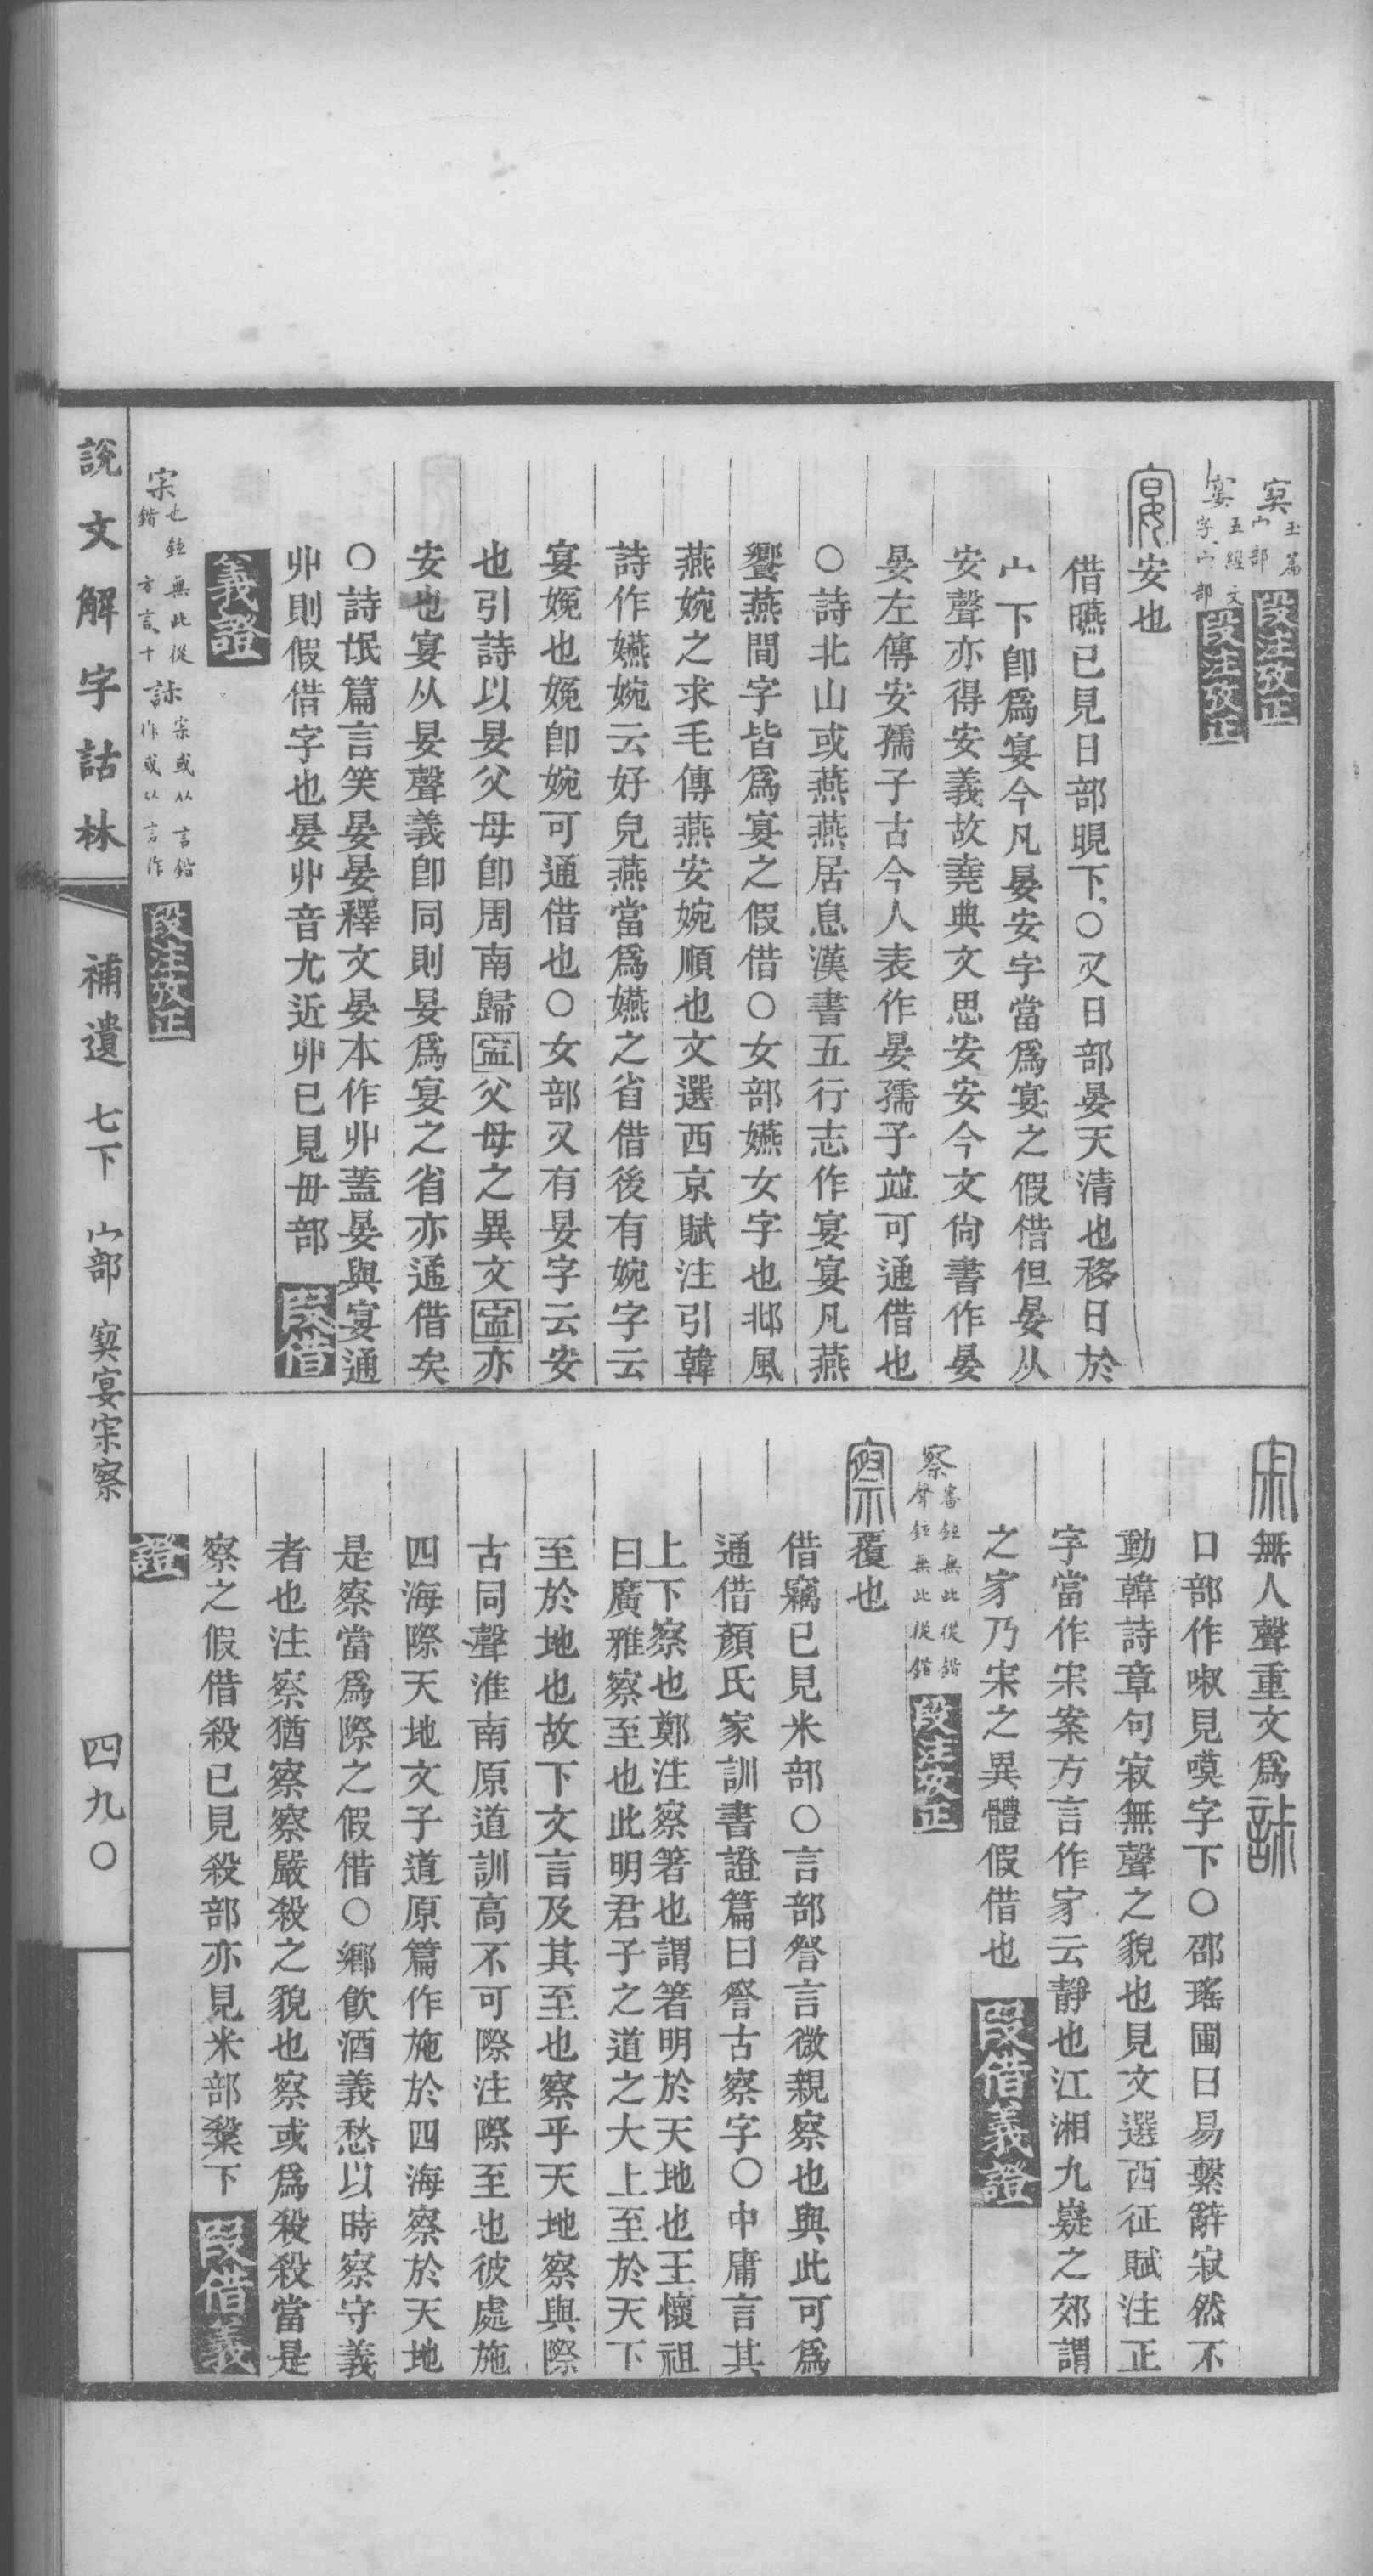 寞玉篇宀部 段注攷正
宴五經文字宀部 段注攷正
宴安也
借曣已見日部晛下○又日部晏天清也移日於
宀下卽爲宴今凡晏安字當爲宴之假借但晏从
安聲亦得安義故堯典文思安安今文尙書作晏
晏左傳安孺子古今人表作晏孺子竝可通借也
○詩北山或燕燕居息漢書五行志作宴宴凡燕
饗燕間字皆爲宴之假借○女部嬿女字也邶風
燕婉之求毛傳燕安婉順也文選西京賦注引韓
詩作嬿婉云好皃燕當爲嬿之省借後有婉字云
宴婏也婏卽婉可通借也○女部又有妟字云安
也引詩以妟父母卽周南歸寍父母之異文寍亦
安也宴从妟聲義卽同則妟爲宴之省亦通借矣
○詩氓篇言笑晏晏釋文晏本作丱蓋晏與宴通
丱則假借字也晏丱音尤近丱已見毌部 段借
義證
宋也鉉無此從鍇方言十 誄宋或从言鍇作或从言作 段注攷正
說文解字詁林 補遺 七下 宀部 寞宴宋察 四九○
宋無人聲重文爲誄
口部作啾見嘆字下○邵瑤圃曰易繫辭寂然不
動韓詩章句寂無聲之貌也見文選西征賦注正
字當作宋案方言作家云靜也江湘九嶷之郊謂
之家乃宋之異體假借也 段借義證
察審鉉無此從鍇聲鉉無此從鍇 段注攷正
察覆也
借竊已見米部○言部詧言微親察也與此可爲
通借顏氏家訓書證篇曰詧古察字○中庸言其
上下察也鄭注察箸也謂箸明於天地也王懷祖
曰廣雅察至也此明君子之道之大上至於天下
至於地也故下文言及其至也察乎天地察與際
古同聲淮南原道訓高不可際注際至也彼處施
四海際天地文子道原篇作施於四海察於天地
是察當爲際之假借○鄉飮酒義愁以時察守義
者也注察猶察察嚴殺之貌也察或爲殺殺當是
察之假借殺已見殺部亦見米部䊛下 段借義
證